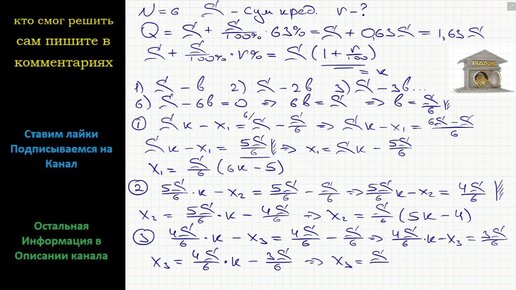 кто смог решить
сам пишите в
комментариях
Ставим лайки
Подписываемся на
Канал
Остальная
Информация в
Описании канала
BANK
N=6 S - сум кред. r-?
Q = S + S/100% · 63% = S + 0,63S = 1,63S
S + S/100% · r% = S(1 + r/100) = к
1) S - b 2) S - 2b 3) S - 3b...
6) S - 6b = 0 => 6b = S => b = S/6
① Sк - x₁ = 6/S - S/6 => Sк - x₁ = 6S-S/6
Sк - x₁ = 5S/6 => x₁ = Sк - 5S/6
x₁ = S/6 (6к - 5)
② 5S/6 · к - x₂ = 5S/6 - S/6 => 5S/6 к - x₂ = 4S/6
x₂ = 5S/6 · к - 4S/6 => x₂ = S/6 (5к - 4)
③ 4S/6 · к - x₃ = 4S/6 - S/6 => 4S/6 · к - x₃ = 3S/6
x₃ = 4S/6 · к - 3S/6 => x₃ = S